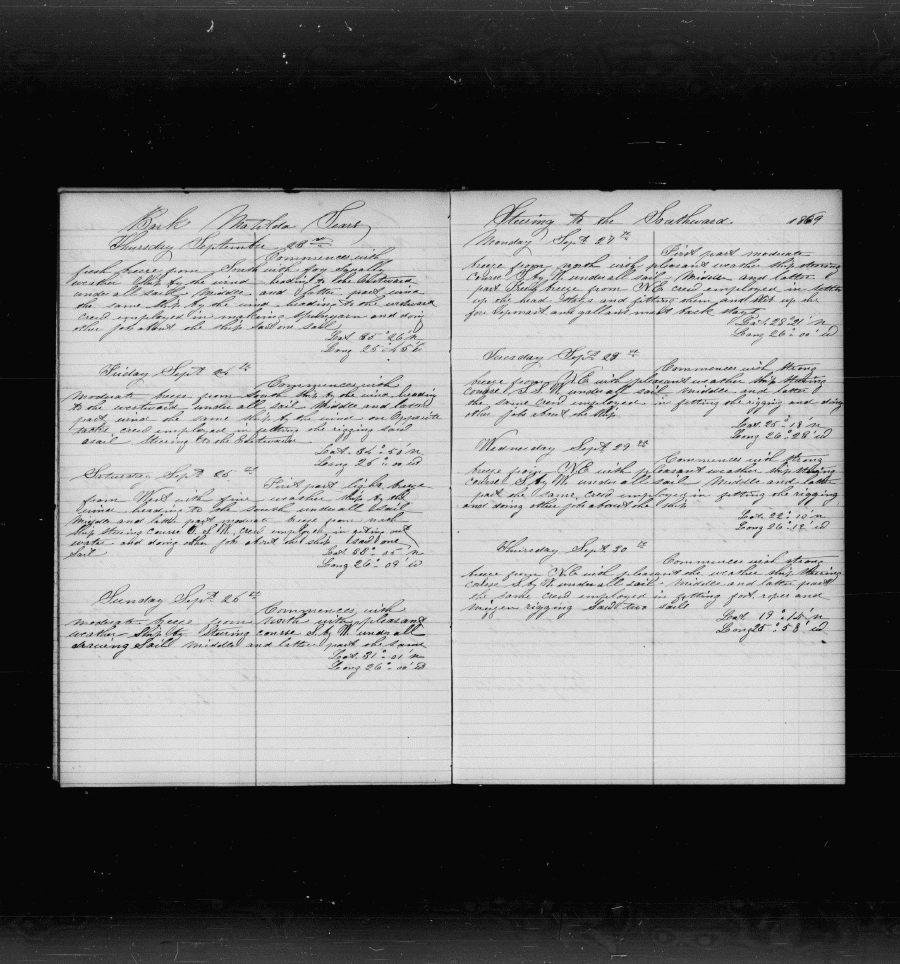 Bark Matilda Sears
Thursday September 23rd
Commences with
fresh breeze from South with fog squally
weather ship by the wind heading to the westward
under all sail Middle and latter part wind
the same ship by the wind heading to the westward
crew employed in making Spunyarn and doing
other job about the ship said on sail
Lat 35° 26' N
Long 25°
Friday Sept 24th
Commences with
moderate breeze from South ship by the wind heading
to the westward under all sail Middle and latter
part wind the same ship by the wind on Opposite
tacks crew employed in fitting the rigging said
a sail Steering to the Eastward
Lat 34° 50' N
Long 25° 00 W
Saturday Sept 25th
First part light breeze
from West with fine weather ship by the
wind heading to the South under all Sail
Middle and latter part moderate breeze from north
ship steering course S. by W. crew employed in getting out
water and doing other job about the ship Saw one
Sail
Lat 33° 05' N
Long 26° 09' W
Sunday Sept 26th
Commences with
moderate breeze from North with pleasant
weather ship by Steering course S. by W. under all
drawing Sail Middle and latter part the same
Lat 31° 01' N
Long 26° 00' W
Steering to the Southward. 1869
Monday Sept 27th
First part moderate
breeze from north with pleasant weather ship steering
course S. by W. under all sail Middle and latter
part Fresh breeze from N.E crew employed in setting
up the head stays and fitting them and set up the
fore topmast and gallant mast back stays
Lat 28° 21' N
Long 26° 00' W
Tuesday Sept 28th
Commences with strong
breeze from N.E with pleasant weather ship steering
course S. by W. under all sail Middle and latter
the same crew employed in fitting the rigging and doing
other job about the ship
Lat 25° 18' N
Long 26° 28' W
Wednesday Sept 29th
Commences with strong
breeze from N.E with pleasant weather ship steering
course S. by W. under all sail Middle and latter
part the same crew employed in fitting the rigging
and doing other job about the ship
Lat 22° 10' N
Long 26° 12' W
Thursday Sept 30th
Commences with strong
breeze from N.E with pleasant the weather ship steering
course S. by W. under all sail Middle and latter part
the same crew employed in fitting foot ropes and
rigging Said two sails
Lat 19° 15' N
Long 25° 58' W